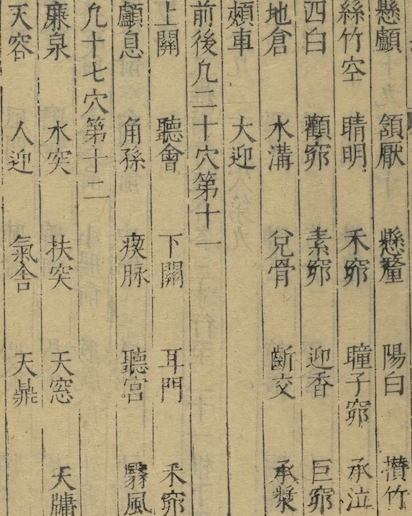 懸顱 頷厭 懸釐 陽白 攅竹
絲竹空 睛明 禾窌 瞳子窌 承泣
四白 顴窌 素窌 迎香 巨窌
地倉 水溝 兌骨 齗交 承漿
頰車 大迎
前後凡二十穴第十一
上關 聽會 下關 耳門 禾窌
顱息 角孫 瘈脉 聽宮 翳風
凡十七穴第十二
廉泉 水突 扶突 天窓 天牗
天容 人迎 氣舎 天鼎